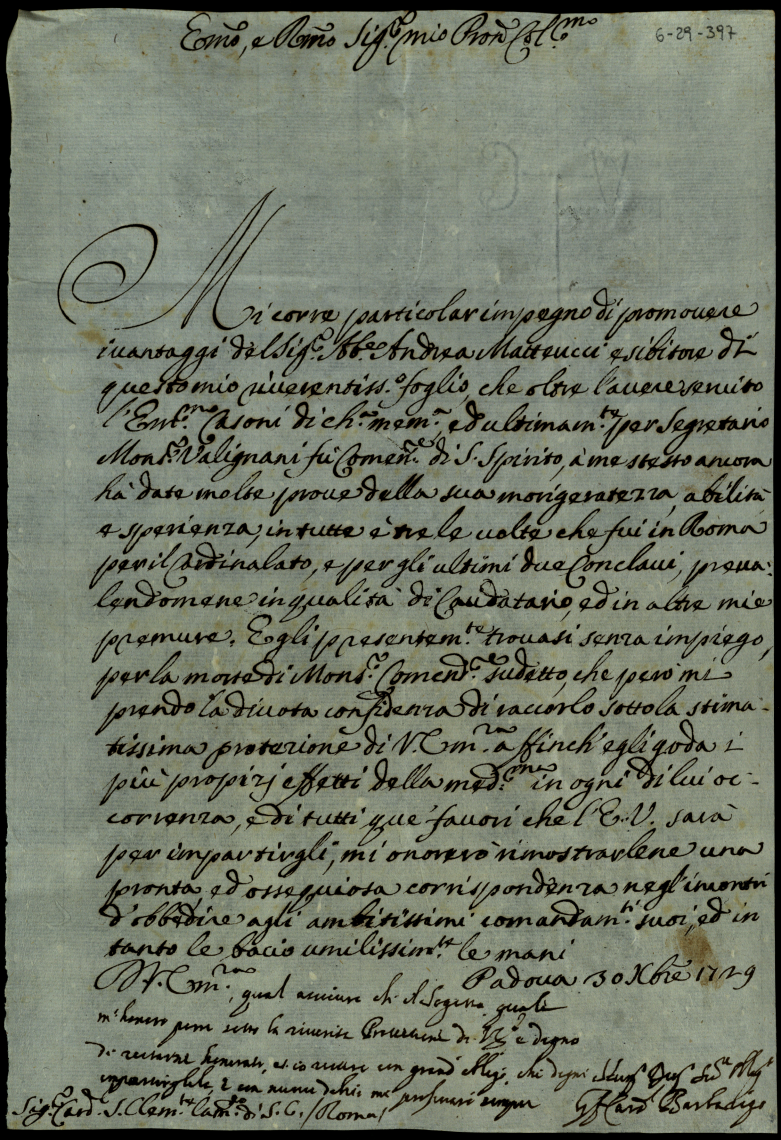 Em̃o, e Rm̃o Sig.r mio Pron Col.mo
6-29-397
Mi corre particolar impegno di promovere
i vantaggi del Sig.r Ab.e Andrea Matteucci esibitore di
questo mio riverentiss.o foglio, che oltre l'avere servito
l'Em.mo Casoni di ch. mem.a ed ultimam.te per Segretario
Mons.r Valignani fù Comen.re di S. Spirito, à me stesso ancora
hà date molte prove della sua morigeratezza, abilità
e sperienza, in tutte e tre le volte che fui in Roma
per il Cardinalato, e per gli ultimi due Conclavi, preva-
lendomene in qualità di Caudatario, ed in altre mie
premure. Egli presentem.te trovasi senza impiego,
per la morte di Mons.r Comend.re sudetto, che però mi
prendo la divota confidenza di raccorlo sotto la stima-
tissima protezione di V. Em.za affinch' egli goda i
più propizj effetti della med.ma in ogni di lui oc-
correnza, e di tutti que' favori che l'E. V. sarà
per impartirgli, mi onorerò rimostrarlene una
pronta ed ossequiosa corrispondenza negl'incontri
d'obbedire agli ambitissimi comandam.ti suoi, ed in
tanto le bacio umilissim.te le mani
D. V. Em.za Padova 30 Xbre 1729
qual
m'honoro porre sotto la riverita Protezione di V. E. è degno
di
impartirgliele, e con
Sig.r Card. S. Clem.te Cam.go di S. C. /Roma/ G. F. Card. Barbadigo